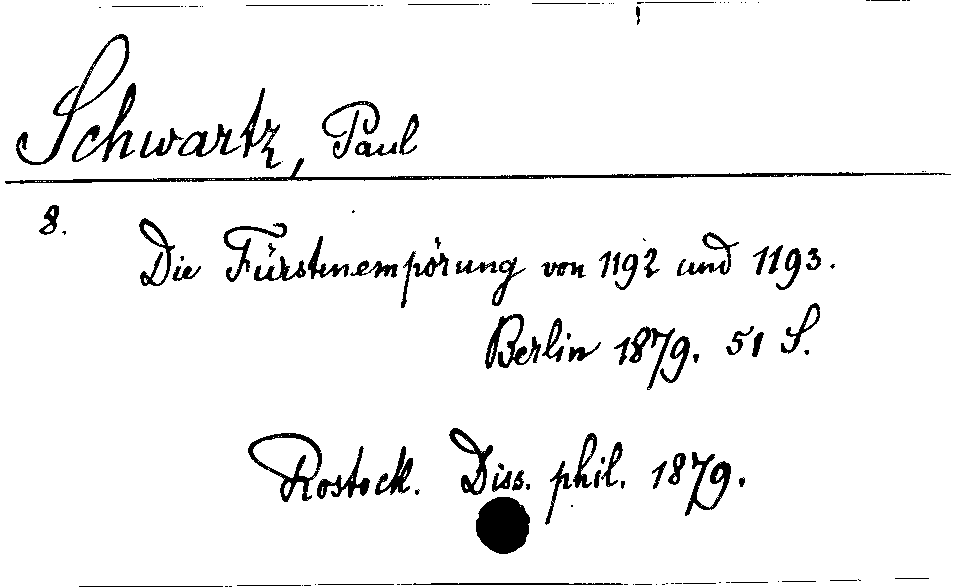 Schwartz, Paul
8.
Die Fürstenempörung von 1192 und 1193.
Berlin 1879. 51 S.
Rostock. Diss. phil. 1879.